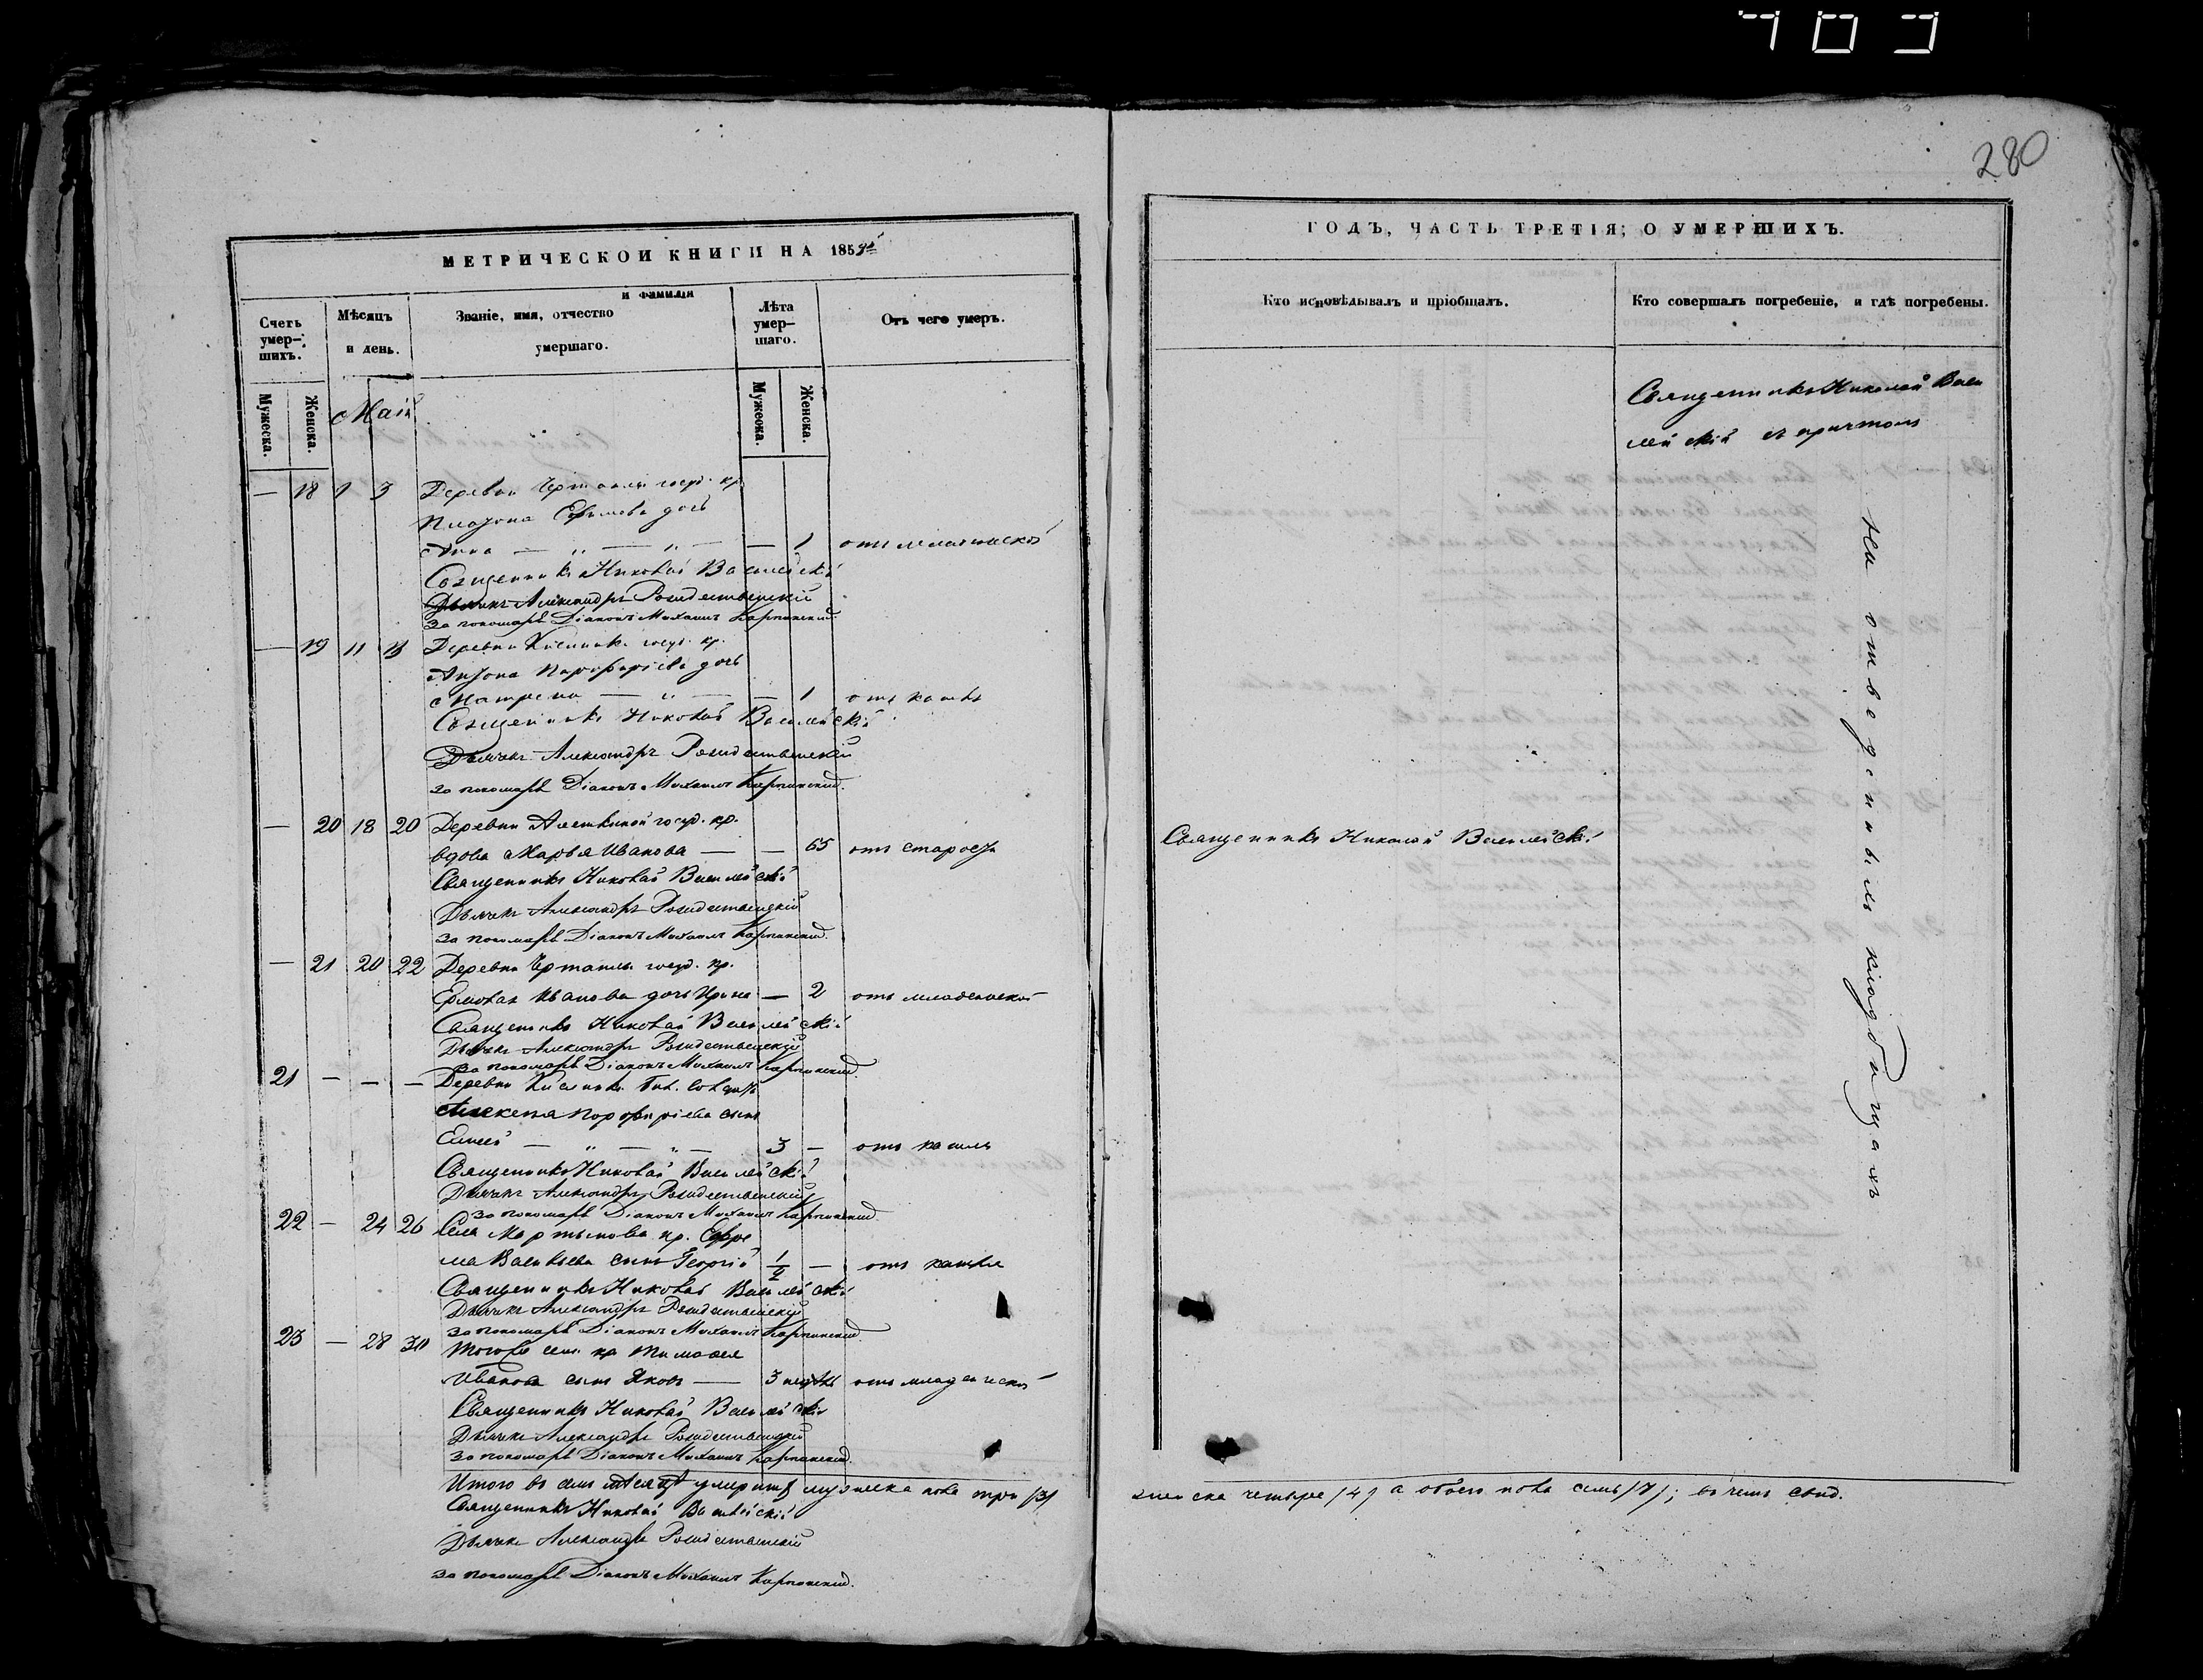 280
МЕТРИЧЕСКОЙ КНИГИ НА 1859й
Счетъ умер-шихъ.
Мѣсяцъ и день.
Званіе, имя, отчество и фамилія умершаго.
Лѣта умер-шаго.
Отъ чего умеръ.
Мужеска.
Женска.
Мужеска.
Женска.
Маій
— 18 1 3 Деревни государ. кр.
Платона Ефимова дочь
Анна — „ — „ — — 1 отъ младенческой
Священникъ Николай Василейскій
Дьячекъ Александръ Рождественскій
За пономаря Діаконъ Михаилъ Карпинскій.
— 19 11 13 Деревни госуд. кр.
Порфиріева дочь
Матрена — „ — — 1 отъ кашля
Священникъ Николай Василейскій
Дьячекъ Александръ Рождественскій
За пономаря Діаконъ Михаилъ Карпинскій.
— 20 18 20 Деревни Алешкиной госуд. кр.
вдова Марья Иванова — — 65 отъ старости
Священникъ Николай Василейскій
Дьячекъ Александръ Рождественскій
За пономаря Діаконъ Михаилъ Карпинскій.
— 21 20 22 Деревни госуд. кр.
Ермолая Иванова дочь Ирина — 2 отъ младенческой
Священникъ Николай Василейскій
Дьячекъ Александръ Рождественскій
За пономаря Діаконъ Михаилъ Карпинскій.
21 — — — Деревни
Алексея Порфиріева сынъ
Елисей — „ — „ — 3 — отъ кашля
Священникъ Николай Василейскій
Дьячекъ Александръ Рождественскій
За пономаря Діаконъ Михаилъ Карпинскій.
22 — 24 26 Села Мартынова кр. Ефре
ма Васильева сынъ Георгій 1/2 — отъ кашля
Священникъ Николай Василейскій
Дьячекъ Александръ Рождественскій
За пономаря Діаконъ Михаилъ Карпинскій.
23 — 28 30 Тогоже села кр. Тимофея
Иванова сынъ Яковъ — 3 недѣль отъ младенческой
Священникъ Николай Василейскій
Дьячекъ Александръ Рождественскій
За пономаря Діаконъ Михаилъ Карпинскій.
Итого въ семъ мѣсяцѣ умершихъ мужеска пола три /3/
Священникъ Николай Василейскій
Дьячекъ Александръ Рождественскій
За пономаря Діаконъ Михаилъ Карпинскій.
ГОДЪ, ЧАСТЬ ТРЕТІЯ; О УМЕРШИХЪ.
Кто исповѣдывалъ и пріобщалъ.
Кто совершалъ погребеніе, и гдѣ погребены.
Священникъ Николай Васи
лейскій съ причтомъ
На отведенныхъ кладбищахъ
Священникъ Николай Василейскій
женска четыре /4/ а обоего пола семь /7/; въ чемъ свид.